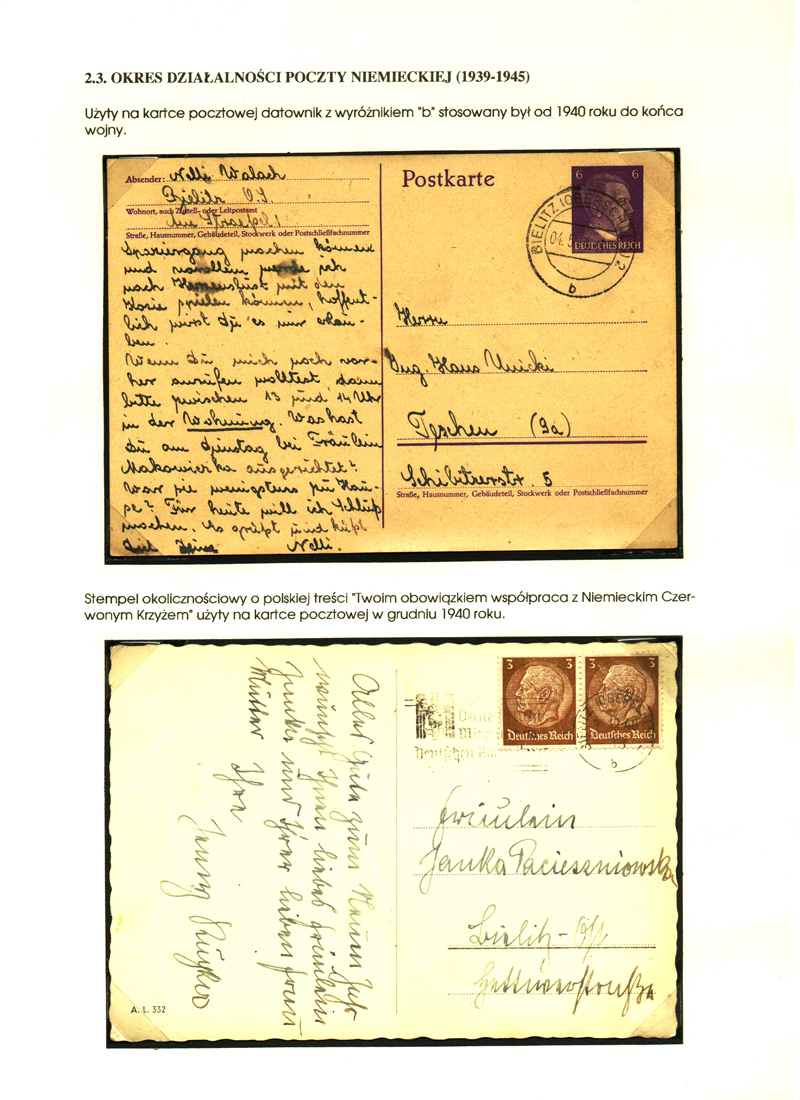 2.3. OKRES DZIAŁALNOŚCI POCZTY NIEMIECKIEJ (1939-1945)
Użyty na kartce pocztowej datownik z wyróżnikiem "b" stosowany był od 1940 roku do końca
wojny.
Absender: Nelli Walach
Bielitz O.S.
Wohnort, auch Zustell- oder Leitpostamt
Straße, Hausnummer, Gebäudeteil, Stockwerk oder Postschließfachnummer
Spaziergang machen können
und vorallem werde ich
nach Herzenslust mit den
spielen können, hoffent-
lich wirst Du es mir erlau-
ben.
Wenn Du mich noch vor-
her anrufen wolltest, dann
bitte zwischen 13 und 14 Uhr
in der Wohnung. Was hast
Du am Dienstag bei Fräulein
Makowierka ausgerichtet?
War sie wenigstens zu Hau-
se? Für heute will ich Schluß
machen. Es grüßt und küßt
Dich Deine Nelli.
Postkarte
6 6
DEUTSCHES REICH
BIELITZ (OBERSCHL) 2
04.5
b
Herrn
Ing. Hans Unicki
Teschen (9a)
Schibitzerstr. 5
Straße, Hausnummer, Gebäudeteil, Stockwerk oder Postschließfachnummer
Stempel okolicznościowy o polskiej treści "Twoim obowiązkiem współpraca z Niemieckim Czer-
wonym Krzyżem" użyty na kartce pocztowej w grudniu 1940 roku.
Alles Gute zum Neuen Jahr
wünscht Ihnen liebes Fräulein
Janka und Ihrer lieben Frau
Mutter Ihre
Jenny
A. L. 332
3 3 3 3
Deutsches Reich Deutsches Reich
Deine
Deutschen
b
Fräulein
Janka Pacieszniowska
Bielitz-